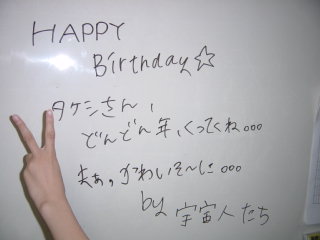 HAPPY
Birthday☆
タケシさん、
どんどん年、くってくね。。。
まぁ。かわいそ〜に。。。
by 宇宙人たち